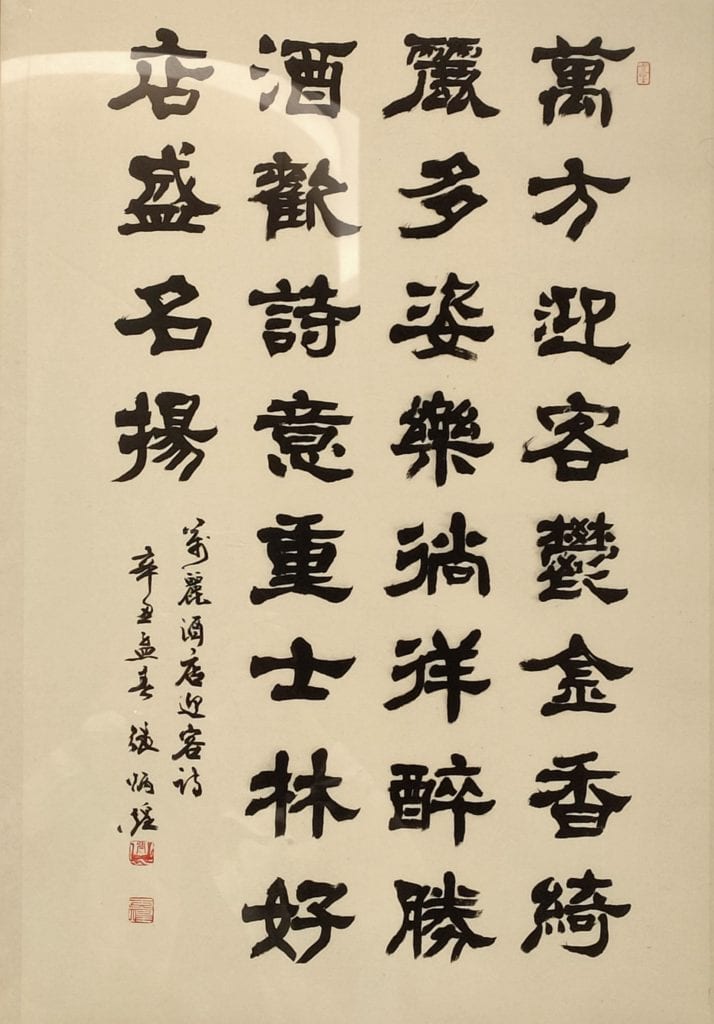 萬方迎客鬱金香綺
麗多姿樂徜徉醉勝
酒歡詩意重士林好
店盛名揚
萬麗酒店迎客詩
辛丑孟春 張炳煌